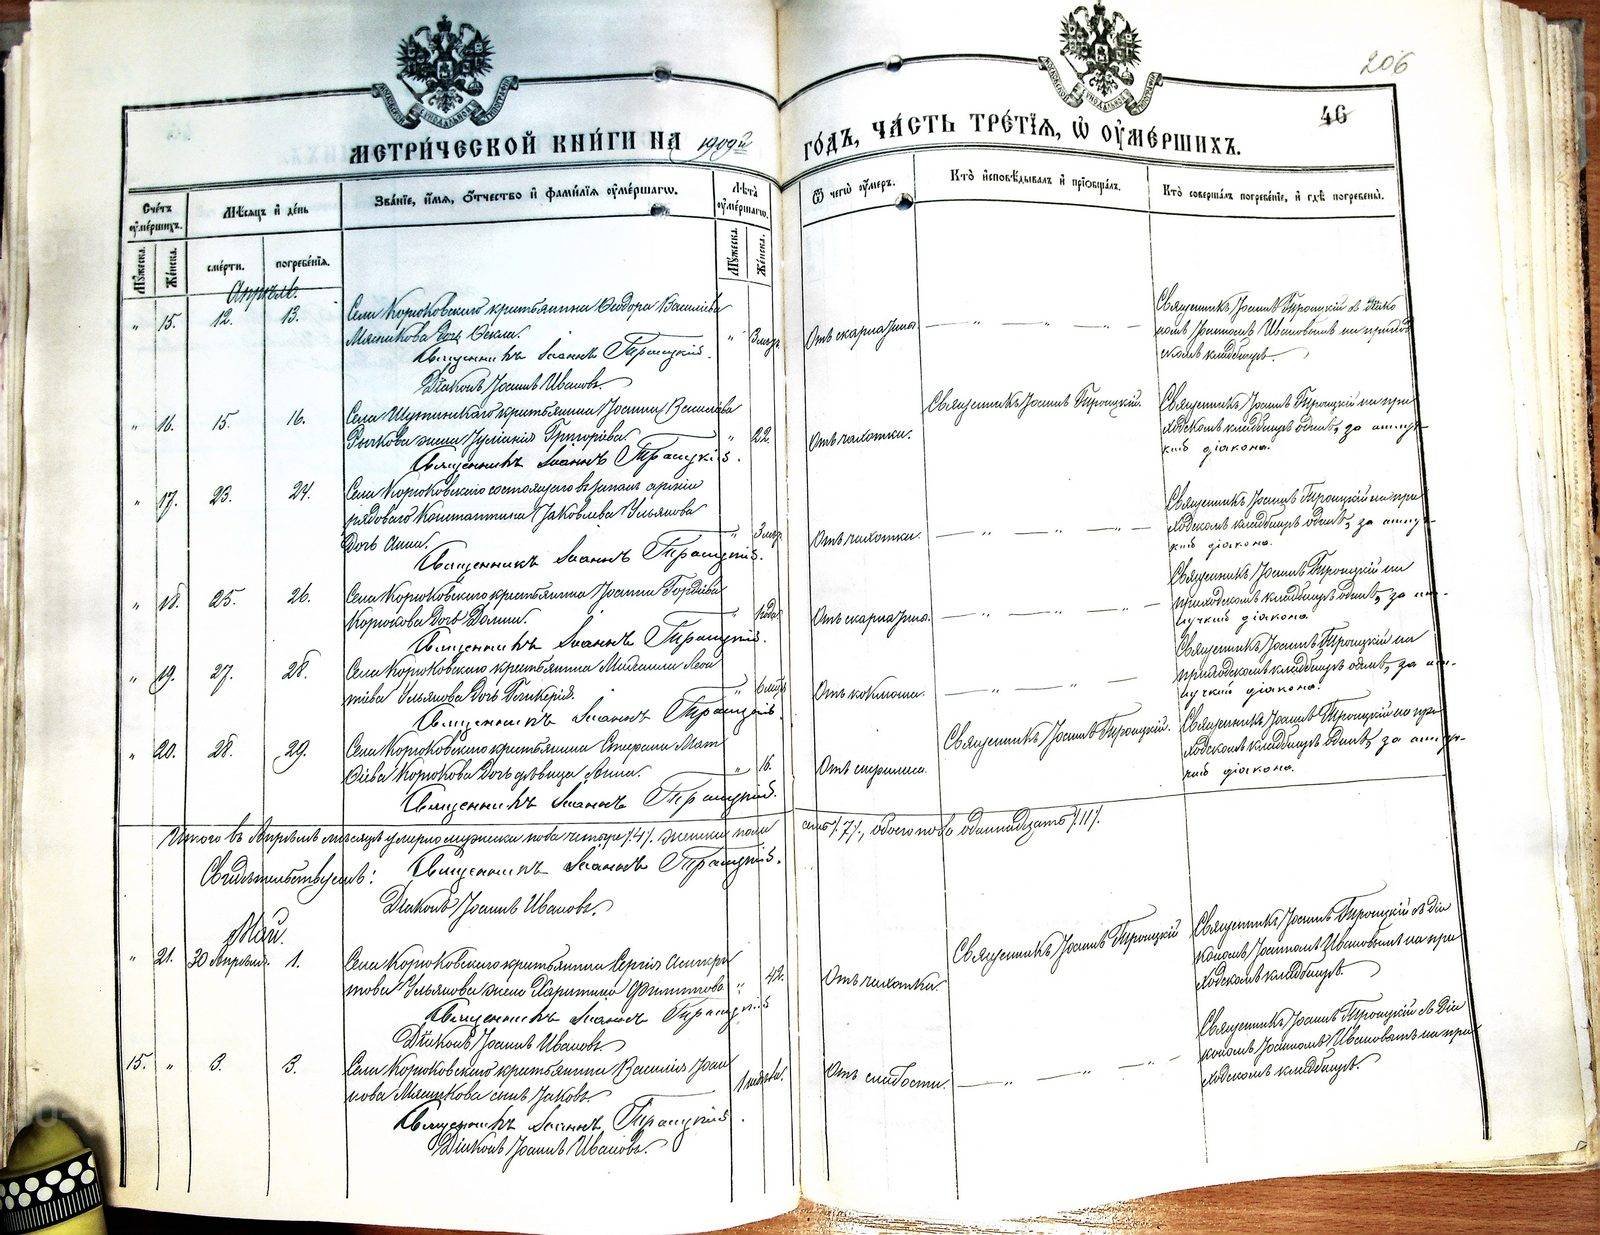 206
46
МЕТРИ́ЧЕСКОЙ КНИ́ГИ НА 1909й ГО́ДЪ, ЧА́СТЬ ТРЕ́ТІѦ, Ѡ҆ ОУ҆МЕ́РШИХЪ.
Сче́тъ оу҆ме́ршихъ.
Мѣ́сѧцъ и҆ де́нь
Зва́нїе, и҆́мѧ, ѻ҆́тчество и҆ фами́лїѧ оу҆ме́ршагѡ.
Лѣ́та оу҆ме́ршагѡ.
Ѿ чегѡ̀ оу҆́меръ.
Кто̀ и҆сповѣ́дывалъ и҆ прїѡбща́лъ.
Кто̀ соверша́лъ погребе́нїе, и҆ гдѣ̀ погребены̀.
Мꙋ́жеска.
Же́нска.
сме́рти.
погребе́нїѧ.
Мꙋ́жеска.
Же́нска.
Апрѣль.
" 15. 12. 13. Села Корюковскаго крестьянина Ѳеодора Васильева
Мясникова дочь Ѳекла. "
Священникъ Іоаннъ Троицкій.
Діаконъ Іоаннъ Ивановъ.
Отъ скарлатины.
Священникъ Іоаннъ Троицкій съ діако
номъ Іоанномъ Ивановымъ на приход
скомъ кладбищѣ.
" 16. 15. 16. Села крестьянина Іоанна Васильева
Рычкова жена Іуліанія Григорьева. " 22.
Священникъ Іоаннъ Троицкій.
Отъ чахотки.
Священникъ Іоаннъ Троицкій.
Священникъ Іоаннъ Троицкій на при
ходскомъ кладбищѣ одинъ, за отлуч-
кой діакона.
" 17. 23. 24. Села Корюковскаго состоящаго въ запасѣ арміи
рядоваго Константина Іаковлева Ульянова
дочь Анна. "
Священникъ Іоаннъ Троицкій.
Отъ чахотки.
Священникъ Іоаннъ Троицкій на при
ходскомъ кладбищѣ одинъ, за отлуч-
кой діакона.
" 18. 25. 26. Села Корюковскаго крестьянина Іоанна Гордѣева
Корюкова дочь "
Священникъ Іоаннъ Троицкій.
Отъ скарлатины.
Священникъ Іоаннъ Троицкій на
приходскомъ кладбищѣ одинъ, за от-
лучкой діакона.
" 19. 27. 28. Села Корюковскаго крестьянина Михаила
Ульянова дочь Гликерія. "
Священникъ Іоаннъ Троицкій.
Отъ коклюша.
Священникъ Іоаннъ Троицкій на
приходскомъ кладбищѣ одинъ, за от-
лучкой діакона.
" 20. 28. 29. Села Корюковскаго крестьянина Мат
ѳіева Корюкова дочь дѣвица Анна. " 16.
Священникъ Іоаннъ Троицкій.
Священникъ Іоаннъ Троицкій.
Священникъ Іоаннъ Троицкій на при
ходскомъ кладбищѣ одинъ, за отлуч-
кой діакона.
Итого въ Апрѣлѣ мѣсяцѣ умерло мужеска пола четыре /4/. женска пола семь /7/, обоего пола одиннадцать /11/.
Свидѣтельствуемъ: Священникъ Іоаннъ Троицкій.
Діаконъ Іоаннъ Ивановъ.
Май.
" 21. 30 Апрѣля. 1. Села Корюковскаго крестьянина Сергія
Ульянова жена Харитина Филиппова " 42.
Священникъ Іоаннъ Троицкій
Діаконъ Іоаннъ Ивановъ.
Отъ чахотки
Священникъ Іоаннъ Троицкій
Священникъ Іоаннъ Троицкій съ діа
кономъ Іоанномъ Ивановымъ на при
ходскомъ кладбищѣ.
15. " 3. 3. Села Корюковскаго крестьянина Василія Іоан
нова Мясникова сынъ Іаковъ.
Священникъ Іоаннъ Троицкій.
Діаконъ Іоаннъ Ивановъ.
Отъ слабости.
Священникъ Іоаннъ Троицкій съ діа
кономъ Іоанномъ Ивановымъ на при
ходскомъ кладбищѣ.